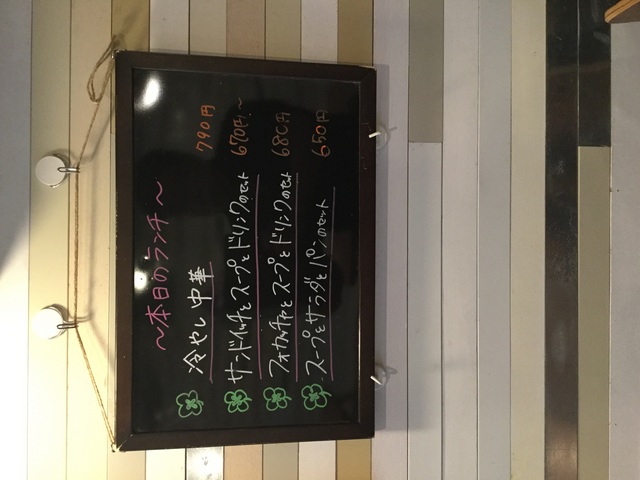 ～本日のランチ～
冷やし中華 790円
サンドイッチとスープとドリンクのセット 670円～
フォカッチャとスープとドリンクのセット 680円
スープとサラダとパンのセット 650円